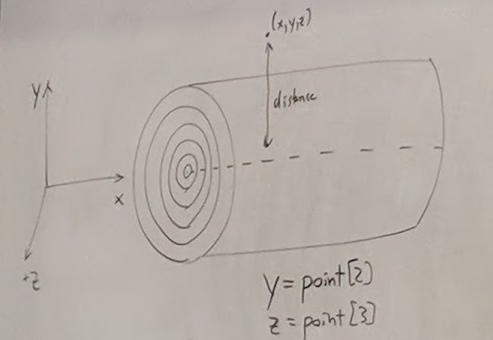 (x,y,z)
Y
distance
x
+z
y = point[2]
z = point[3]